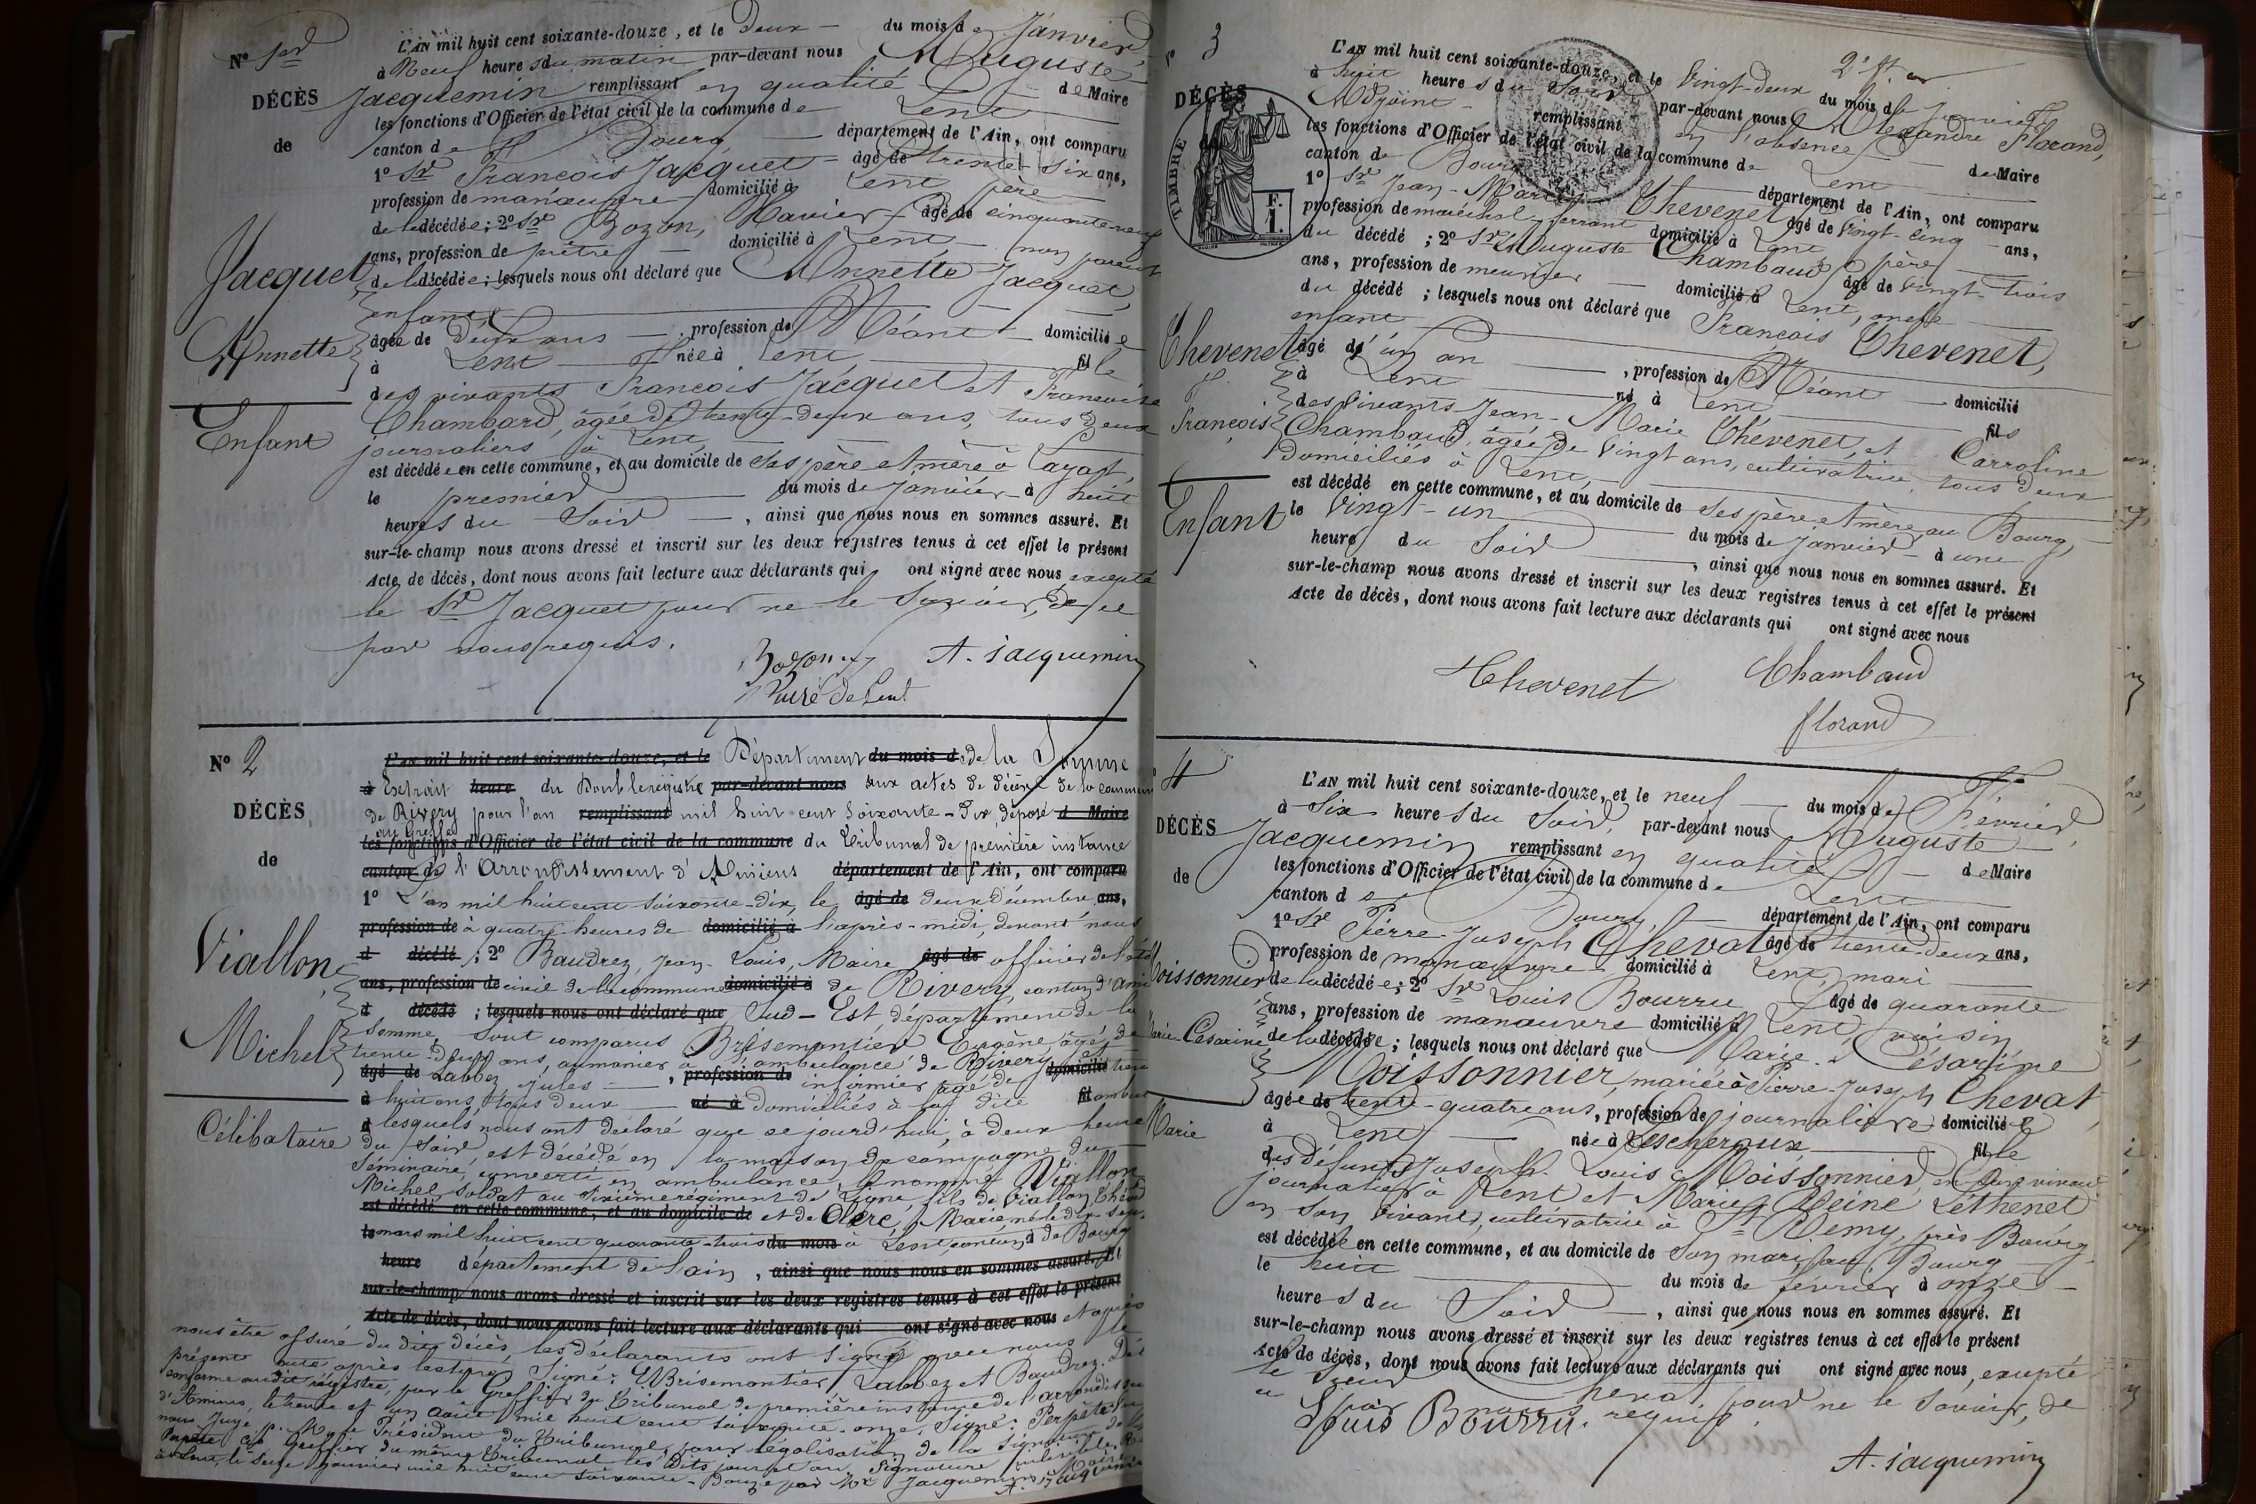 N° 1er
DÉCÈS
de
Jacquet,
Annette
Enfant
L'AN mil huit cent soixante-douze, et le Deux du mois de Janvier,
à Neuf heures du matin par-devant nous Auguste
Jacquemin remplissant en qualité de Maire
les fonctions d'Officier de l'état civil de la commune de Lent
canton de Bourg département de l'Ain, ont comparu
1° Sr François Jacquet âgé de trente-six ans,
profession de manœuvre domicilié à Lent père
de la décédée ; 2° Sr Bozon, Xavier âgé de cinquante neuf
ans, profession de prêtre domicilié à Lent non parent
de la décédée ; lesquels nous ont déclaré que Annette Jacquet,
enfant
âgée de Deux ans , profession de Néant domiciliée
à Lent née à Lent fille
des vivants François Jacquet et Françoise
Chambard, âgée de trente-deux ans, tous deux
journaliers à Lent
est décédée en cette commune, et au domicile de ses père et mère à
le premier du mois de Janvier à huit
heures du Soir , ainsi que nous nous en sommes assuré. Et
sur-le-champ nous avons dressé et inscrit sur les deux registres tenus à cet effet le présent
Acte de décès, dont nous avons fait lecture aux déclarants qui ont signé avec nous excepté
le Sr Jacquet pour ne le savoir, de ce
par nous requis.
Bozon A. Jacquemin
Curé de Lent
N° 2
DÉCÈS
de
Viallon,
Michel
Célibataire
L'an mil huit cent soixante-douze, et le Département du mois d de la Somme
à Extrait heure du Double registre par-devant nous aux actes de décès de la commune
de Rivery pour l'an remplissant mil huit cent soixante-dix, déposé d Maire
au Greffe
les fonctions d'Officier de l'état civil de la commune du Tribunal de première instance
canton de l'Arrondissement d'Amiens département de l'Ain, ont comparu
1° L'an mil huit cent soixante-dix, le âgé de deux Décembre ans,
profession de à quatre heures de domicilié à l'après-midi, devant nous
d décédé ; 2° Baudrez, Jean-Louis, Maire âgé de officier de l'état
ans, profession de civil de la commune domicilié à de Rivery, canton d'Amiens
d décédé ; lesquels nous ont déclaré que Sud-Est département de la
Somme, sont comparus Brésemontier Eugène âgé de
trente-deux ans, aumônier à l'ambulance de Rivery, et
âgé de Labbez, Jules , profession de infirmier âgé de domicilié trente
à huit ans, tous deux né à domiciliés à la dite fil ambulance
lesquels nous ont déclaré que ce jourd'hui, à deux heures
du soir, est décédé en la maison de campagne du
Séminaire, convertie en ambulance, le nommé Viallon
Michel, soldat au sixième régiment de ligne, fils de Viallon
est décédé en cette commune, et au domicile de et de Clerc, Marie né le dix-sept
le mars mil huit cent quarante-trois du mois à Lent, canton à de Bourg
heure département de l'Ain , ainsi que nous nous en sommes assuré. Et
sur-le-champ nous avons dressé et inscrit sur les deux registres tenus à cet effet le présent
Acte de décès, dont nous avons fait lecture aux déclarants qui ont signé avec nous et après
nous être assuré du dit décès, les déclarants ont signé avec nous le
présent acte après lecture. Signé: Brésemontier, Labbez et Baudrez.
conforme au dit registre, par le Greffier du Tribunal de première instance de l'arrondissement
d'Amiens, le trente et un août mil huit cent soixante-onze. Signé: Perpète
nous Juge Mr le Président du Tribunal, pour légalisation de la signature de
Greffier du même Tribunal les dits jour et an. Signature illisible.
à Lent, le seize janvier mil huit cent soixante-Douze par Mr Jacquemin, Maire
A. Jacquemin
3
2e ft.
DÉCÈS
TIMBRE
F.
1.
Chevenet
François
Enfant
L'AN mil huit cent soixante-douze, et le vingt-deux du mois de Janvier
à huit heures du soir par-devant nous Alexandre Florand,
Adjoint remplissant en l'absence de Maire
les fonctions d'Officier de l'état civil de la commune de Lent
canton de Bourg département de l'Ain, ont comparu
1° Sr Jean-Marie Chevenet âgé de vingt-cinq ans,
profession de maréchal ferrant domicilié à Lent, père
du décédé ; 2° Sr Auguste Chambaud âgé de vingt-trois
ans, profession de meunier domicilié à Lent, oncle
du décédé ; lesquels nous ont déclaré que François Chevenet,
enfant
âgé d'un an , profession de Néant domicilié
à Lent né à Lent fils
des vivants Jean-Marie Chevenet, et Carroline
Chambaud, âgée de vingt ans, cultivatrice, tous deux
domiciliés à Lent,
est décédé en cette commune, et au domicile de ses père et mère au Bourg,
le vingt-un du mois de janvier à une
heure du Soir , ainsi que nous nous en sommes assuré. Et
sur-le-champ nous avons dressé et inscrit sur les deux registres tenus à cet effet le présent
Acte de décès, dont nous avons fait lecture aux déclarants qui ont signé avec nous
Chevenet Chambaud
Florand
4
DÉCÈS
de
Moissonnier
Marie-Césarine
Marie
L'AN mil huit cent soixante-douze, et le neuf du mois de Février,
à Six heures du Soir, par-devant nous Auguste
Jacquemin remplissant en qualité de Maire
les fonctions d'Officier de l'état civil de la commune de Lent
canton de Bourg département de l'Ain, ont comparu
1° Sr Pierre-Joseph Chevat âgé de trente-deux ans,
profession de manœuvre domicilié à Lent, mari
de la décédée ; 2° Sr Louis Bourru âgé de quarante
ans, profession de manœuvre domicilié à Lent, voisin
de la décédée ; lesquels nous ont déclaré que Marie-Césarine
Moissonnier, mariée à Pierre-Joseph Chevat
âgée de trente-quatre ans, profession de journalière domiciliée
à Lent née à Lescheroux, fille
des défunts Joseph-Louis Moissonnier, en son vivant
journalier à Lent et Marie Reine Léthenet
en son vivant, cultivatrice à St Remy, près Bourg
est décédée en cette commune, et au domicile de son mari, au Bourg
le huit du mois de février à onze
heures du Soir , ainsi que nous nous en sommes assuré. Et
sur-le-champ nous avons dressé et inscrit sur les deux registres tenus à cet effet le présent
Acte de décès, dont nous avons fait lecture aux déclarants qui ont signé avec nous, excepté
le Sieur Chevat pour ne le savoir, de
ce par nous requis.
Louis Bourru.
A. Jacquemin